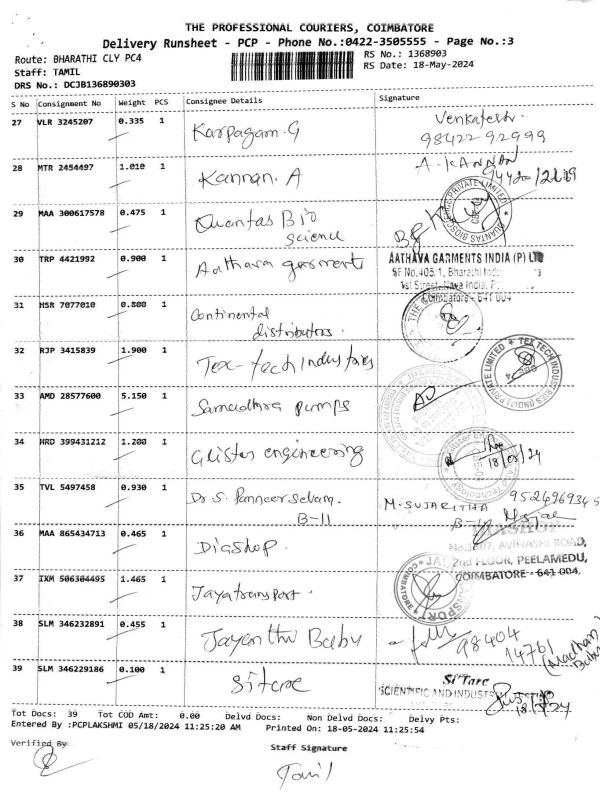 THE PROFESSIONAL COURIERS, COIMBATORE
Delivery Runsheet - PCP - Phone No.:0422-3505555 - Page No.:3
Route: BHARATHI CLY PC4
RS No.: 1368903
Staff: TAMIL
RS Date: 18-May-2024
DRS No.: DCJB136890303
S No Consignment No Weight PCS Consignee Details Signature
27 VLR 3245207 0.335 1 Karpagam. G Venkatesh.
98422-92999
28 MTR 2454497 1.010 1 Kannan. A A. KANNAN
29 MAA 300617578 0.475 1 Quantas Bio
science
30 TRP 4421992 0.900 1 Aathava garments AATHAVA GARMENTS INDIA (P) LTD
SF No.405/1, Bharathi
1st Street, Nava India,
Coimbatore - 641 004
31 HSR 7077010 0.800 1 Continental
distributors.
32 RJP 3415839 1.900 1 Tex-tech Industries TEX TECH INDUSTRIES (INDIA) PRIVATE LIMITED
33 AMD 28577600 5.150 1 Samudhra pumps
34 HRD 399431212 1.200 1 Glister engineering 18/05/24
35 TVL 5497458 0.930 1 Dr S. Panneer Selvam. M. SUJARITHA 9524969345
B-11 B-11
36 MAA 865434713 0.465 1 Diashop. AVINASHI ROAD,
2nd FLOOR, PEELAMEDU,
COIMBATORE - 641 004.
37 IXM 506304495 1.465 1 Jayatransport.
38 SLM 346232891 0.455 1 Jayanthi Babu 98404
14761
(Madhan
Babu)
39 SLM 346229186 0.100 1 Sitarc Si'Tarc
SCIENTIFIC AND INDUST
18/5/24
Tot Docs: 39 Tot COD Amt: 0.00 Delvd Docs: Non Delvd Docs: Delvy Pts:
Entered By :PCPLAKSHMI 05/18/2024 11:25:20 AM Printed On: 18-05-2024 11:25:54
Verified By
Staff Signature
Tamil